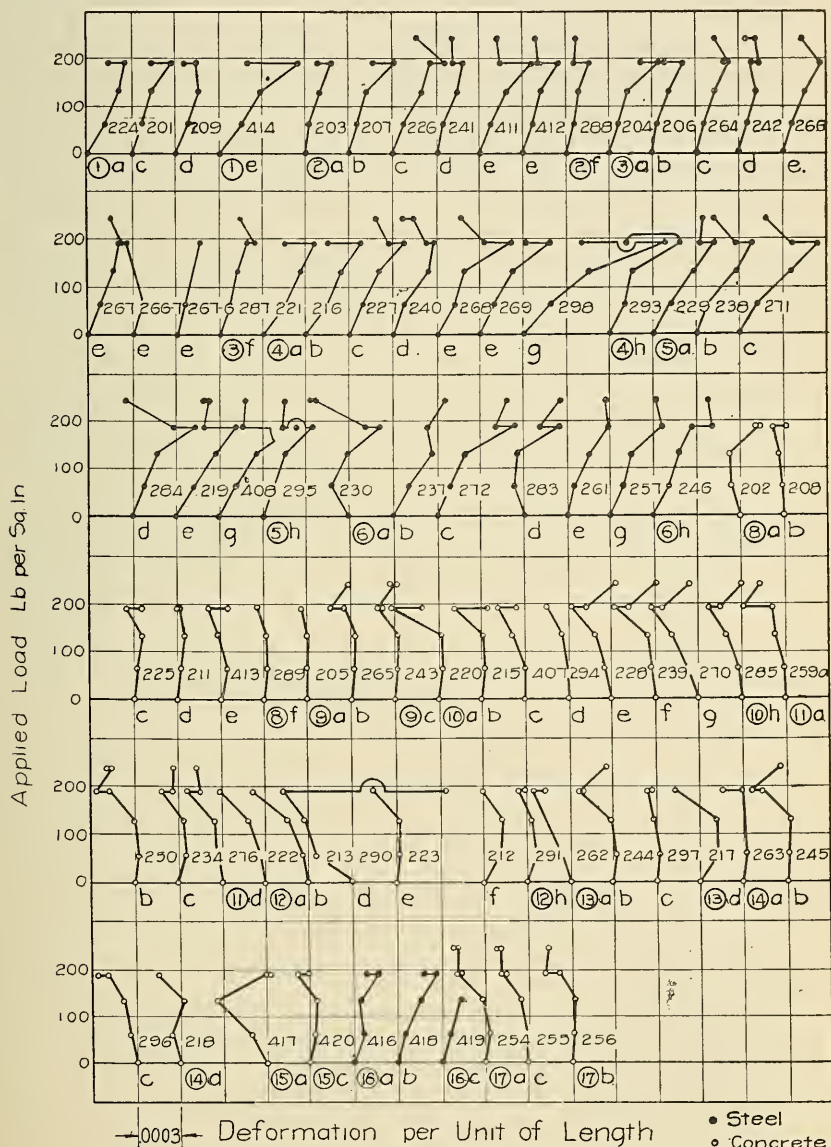 200
100
0
224 201 209 414 203 207 226 241 411 412 288 204 206 264 242 268
①a c d ①e ②a b c d e e ②f ③a b c d e.
200
100
0
267 266-7 267-6 287 221 216 227 240 268 269 298 293 229 238 271
e e e ③f ④a b c d. e e g ④h ⑤a b c
200
100
0
284 219 408 295 230 237 272 283 261 257 246 202 208
d e g ⑤h ⑥a b c d e g ⑥h ⑧a b
200
100
0
225 211 413 289 205 265 243 220 215 407 294 228 239 270 285 259a
c d e ⑧f ⑨a b ⑨c ⑩a b c d e f g ⑩h ⑪a
200
100
0
250 234 276 222 213 290 223 212 291 262 244 297 217 263 245
b c ⑪d ⑫a b d e f ⑫h ⑬a b c ⑬d ⑭a b
200
100
0
296 218 417 420 416 418 419 254 255 256
c ⑭d ⑮a ⑮c ⑯a b ⑯c ⑰a c ⑰b
Applied Load Lb per Sq.In
.0003 Deformation per Unit of Length
• Steel
○ Concrete